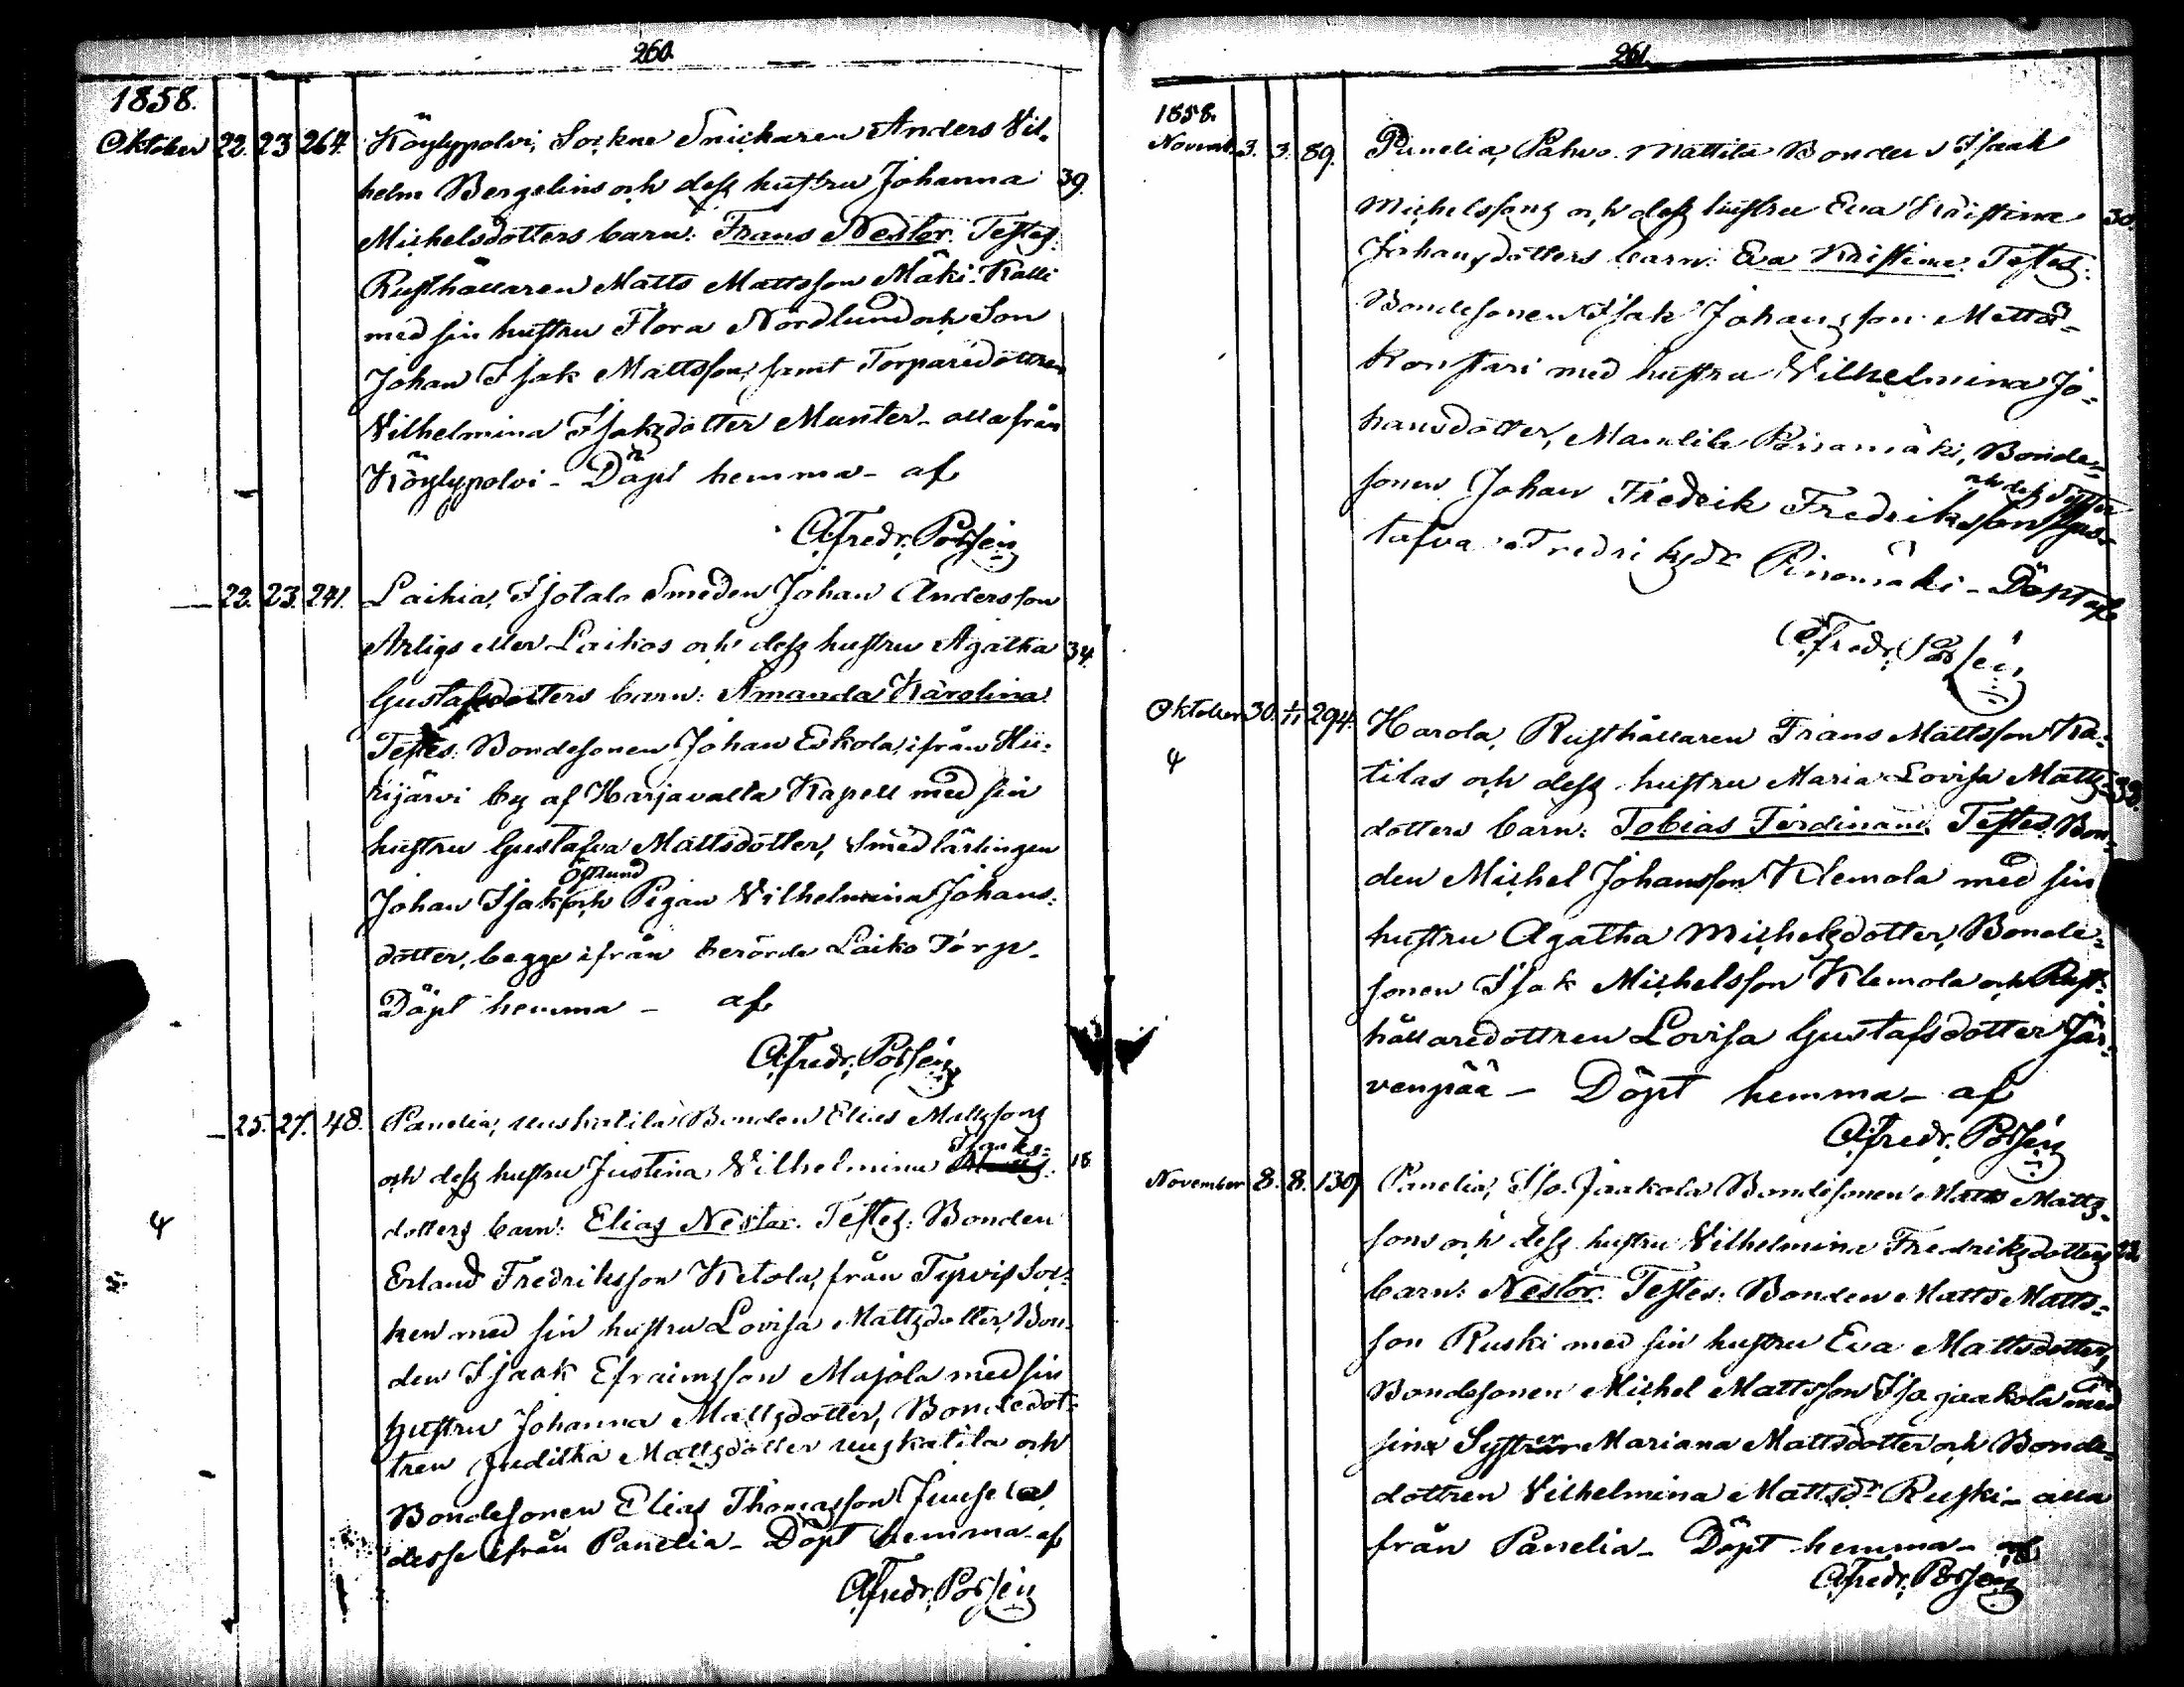 260.
1858.
Oktober 22. 23 264. Köylypolvi, Sockne Snickaren Anders Vil-
helm Bergelins och dess hustru Johanna 39.
Michelsdotters barn: Frans Nestor. Testes:
Rusthållaren Matts Mattsson Mäki-Kalli
med sin hustru Flora Nordlund och Son
Johan Isak Mattsson, samt Torparedottren
Vilhelmina Isaksdotter Munter - alla från
Köylypolvi - Döpt hemma - af
A. Fredr. Possén
— 22. 23. 241. Laihia, Isotalo Smeden Johan Andersson
Arligs eller Laikos och dess hustru Agatha 34
Gustafsdotters barn: Amanda Karolina
Testes: Bondesonen Johan Eskola, ifrån Hii-
rijärvi by af Harjavalta Kapell med sin
hustru Gustafva Mattsdotter, Smedlärlingen
Östlund
Johan Isak och Pigan Vilhelmina Johans-
dotter, begge ifrån berörde Laiko Torp.
Döpt hemma - af
A. Fredr. Possén
— 25. 27. 48. Panelia, Uuskatila Bonden Elias Mattssons
Isaaks-
och dess hustru Justina Vilhelmina 18
dotters barn: Elias Nestor. Testes: Bonden
Erland Fredriksson Ketola, från Tyrvis Soc-
ken med sin hustru Lovisa Mattsdotter, Bon-
den Isaak Efraimsson Majola med sin
hustru Johanna Mattsdotter, Bondedot-
tren Juditha Mattsdotter Uuskatila och
Bondesonen Elias Thomasson Juusela
desse ifrån Panelia - Döpt hemma - af
A. Fredr. Possén
261.
1858.
Novemb. 3. 3. 89. Panelia, Pahvo-Mattila Bonden Isaak
Michelssons och dess hustru Eva Kristina 30.
Johansdotters barn: Eva Kristina. Testes:
Bondesonen Isak Johansson Mattă-
Konstari med hustru Vilhelmina Jo-
hansdotter, Mandila Börsamäki, Bonde-
och dess Syster
sonen Johan Fredrik Fredriksson Gus-
tafva Fredriksdr - Döpt af
A. Fredr. Possén
Oktober 30. 1/11 294. Harola, Rusthållaren Frans Mattsson Ka-
tilas och dess hustru Maria Lovisa Matts- 33.
dotters barn: Tobias Ferdinand. Testes: Bon-
den Michel Johansson Klemola med sin
hustru Agatha Michelsdotter, Bonde-
sonen Isak Michelsson Klemola och Rust-
hållaredottren Lovisa Gustafsdotter Jär-
venpää - Döpt hemma - af
A. Fredr. Possén
November 8. 8. 139 Panelia, Iso-Jaakola Bondesonen Matts Matts-
sons och dess hustru Vilhelmina Fredriksdotters 22.
barn: Nestor. Testes: Bonden Matts Matts-
son Ruski med sin hustru Eva Mattsdotter,
Bondesonen Michel Mattsson Iso jaakola med
sin Syster Mariana Mattsdotter och Bonde-
dottren Vilhelmina Mattsdr Ruski - alla
från Panelia - Döpt hemma - af
A. Fredr. Possén